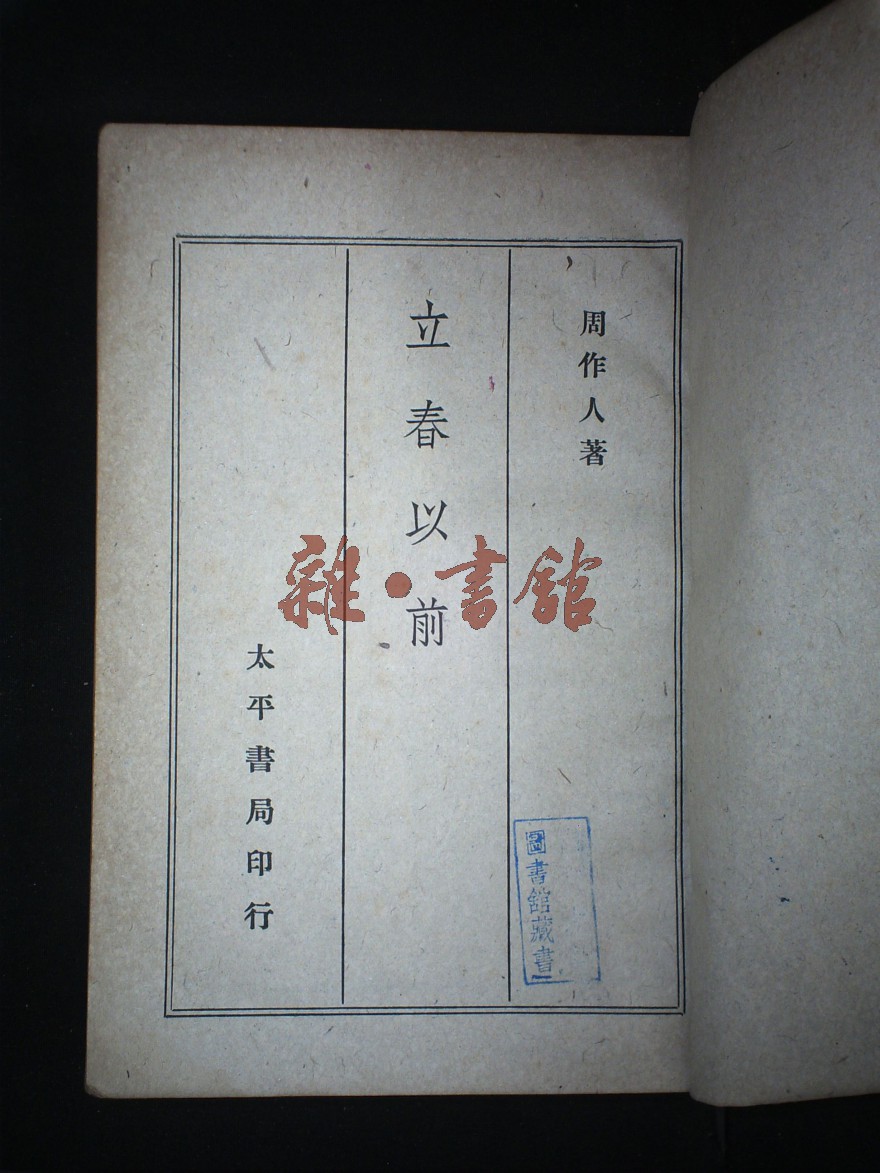 周作人著
立春以前
太平書局印行
圖書館藏書
雜·書館